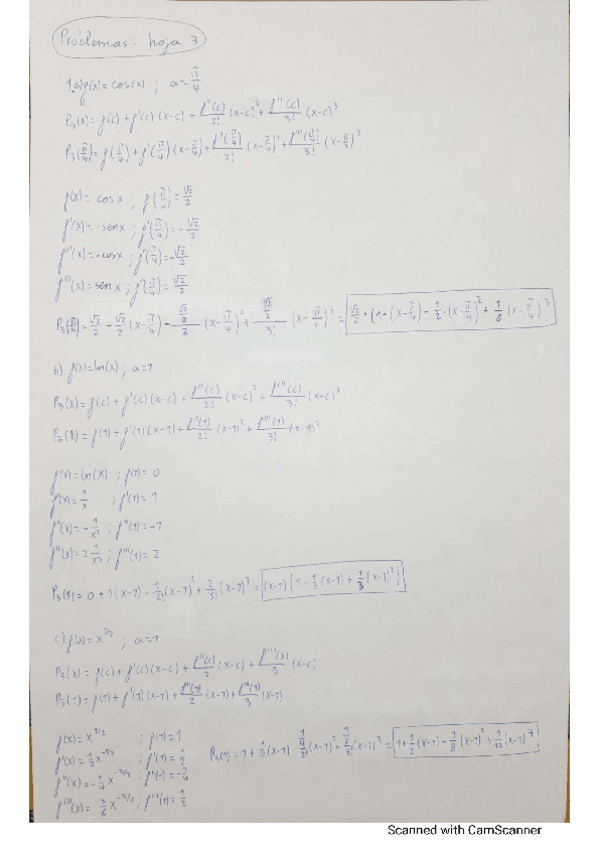 Problemas: hoja 3
1.a) f(x) = cos(x) ; a = π/4
P₃(x) = f(c) + f'(c) (x-c) + f''(c)/2! (x-c)² + f'''(c)/3! (x-c)³
P₃(π/4) = f(π/4) + f'(π/4) (x-π/4) + f''(π/4)/2! (x-π/4)² + f'''(π/4)/3! (x-π/4)³
f(x) = cosx ; f(π/4) = √2/2
f'(x) = -senx ; f'(π/4) = -√2/2
f''(x) = -cosx ; f''(π/4) = -√2/2
f'''(x) = senx ; f'''(π/4) = √2/2
P₃(π/4) = √2/2 - √2/2 (x-π/4) - √2/2/2 (x-π/4)² + √2/2/3! (x-π/4)³ = √2/2 · (1 - (x-π/4) - 1/2 · (x-π/4)² + 1/6 (x-π/4)³
b) f(x) = ln(x) ; a=1
P₃(x) = f(c) + f'(c) (x-c) + f''(c)/2! (x-c)² + f'''(c)/3! (x-c)³
P₃(1) = f(1) + f'(1) (x-1) + f''(1)/2! (x-1)² + f'''(1)/3! (x-1)³
f(x) = ln(x) ; f(1) = 0
f'(x) = 1/x ; f'(1) = 1
f''(x) = -1/x² ; f''(1) = -1
f'''(x) = 2 1/x³ ; f'''(1) = 2
P₃(1) = 0 + 1(x-1) - 1/2! (x-1)² + 2/3! (x-1)³ = (x-1) (1 - 1/2 (x-1) + 1/3 (x-1)²)
c) f(x) = x^1/2 ; a=1
P₃(x) = f(c) + f'(c) (x-c) + f''(c)/2 (x-c) + f'''(x)/3! (x-c)
P₃(1) = f(1) + f'(1) (x-1) + f''(1)/2 (x-1) + f'''(1)/3 (x-1)
f(x) = x^1/2 ; f(1) = 1
f'(x) = 1/2 x^-1/2 ; f'(1) = 1/2
P₃(1) = 1 + 1/2 (x-1) = 1 + 1/2 (x-1) - 1/8 (x-1)² + 1/12 (x-1)³
f''(x) = -1/4 x^-3/2 ; f''(1) = -1/4
f'''(x) = x^-5/2 ; f'''(1) = 1/2
Scanned with CamScanner